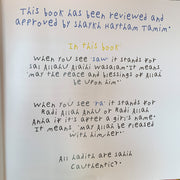 This book has been reviewed and
approved by Shaykh Haytham Tamim.
In this book
When you see 'saw' it stands for
Sal Allahu Alaihi Wasalam "It means,
may the peace and blessings of Allah
be upon him"
When you see 'ra' it stands for
Radi Allah Anhu or Radi Allah
Anha if it's after a girl's name.
It means "may Allah be pleased
with him/her"
All hadith are sahih
(authentic).